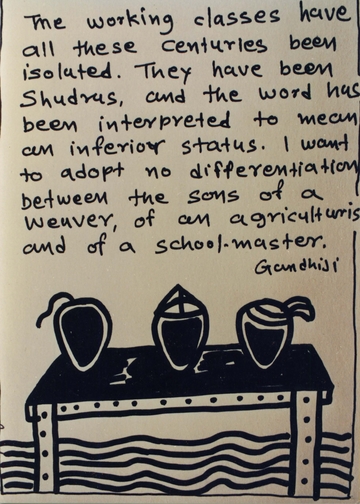 The working classes have
all these centuries been
isolated. They have been
Shudras, and the word has
been interpreted to mean
an inferior status. I want
to adopt no differentiation
between the sons of a
weaver, of an agriculturis
and of a school-master.
Gandhiji